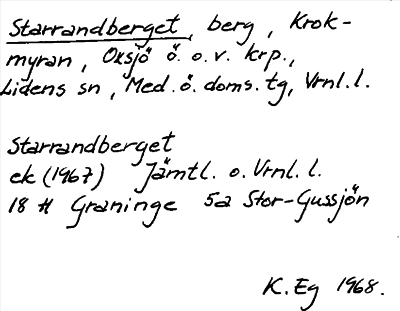 Starrandberget, berg, Krok-
myran, Oxsjö ö. o. v. krp.,
Lidens sn, Med. ö. doms. tg, Vrnl. l.
Starrandberget
ek (1967) Jämtl. o. Vrnl. l.
18 H Graninge 5a Stor-Gussjön
K. Eg 1968.